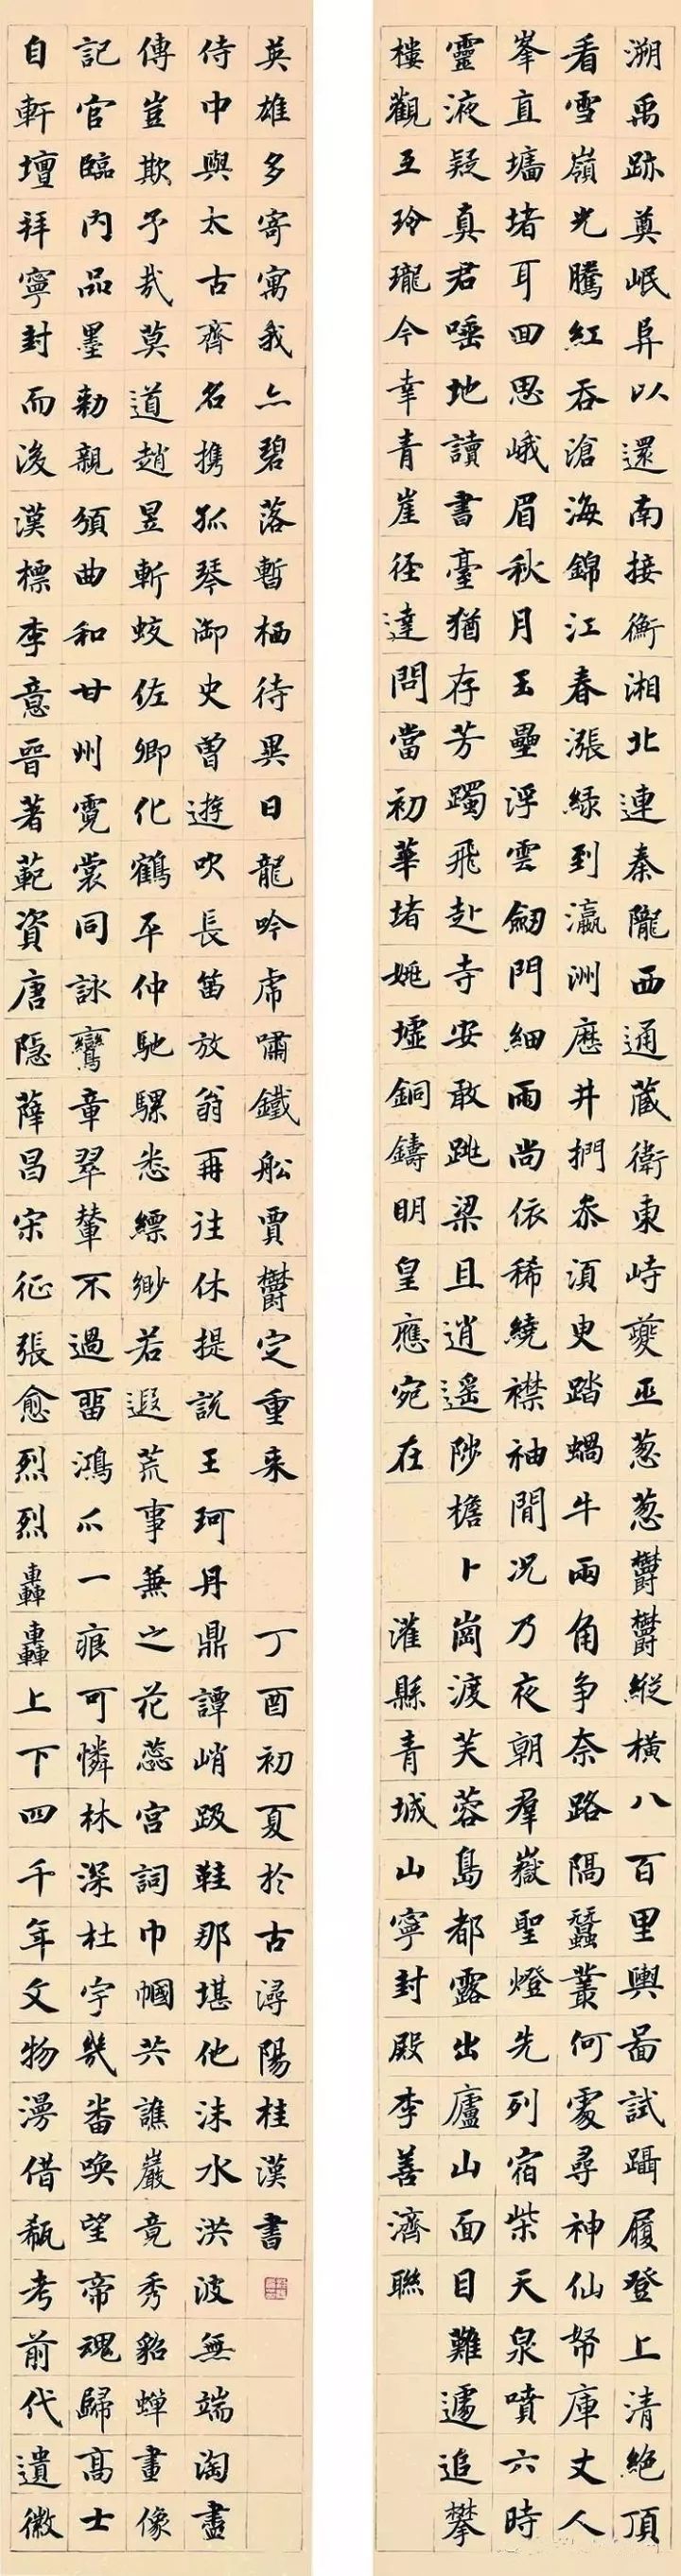 溯禹跡奠岷阜以還南接衡湘北連秦隴西通藏衛東峙夔巫葱葱鬱鬱縱橫八百里輿啚試躡履登上清絕頂
看雪嶺光騰紅吞滄海錦江春漲綠到瀛洲歷井捫叅湏臾踏蝸牛兩角爭奈路隔蠶叢何處尋神仙帑庫丈人
峯直墻堵耳回思峨眉秋月玉壘浮雲劒門細雨尚依稀繞襟袖間況乃夜朝羣嶽聖燈先列宿柴天泉噴六時
靈液疑真君唾地讀書臺猶存芳躅飛赴寺安敢跳梁且逍遙陟檐卜崗渡芙蓉島都露出廬山面目難遽追攀
樓觀互玲瓏今幸青崖徑達問當初華堵姚墟銅鑄明皇應宛在
灌縣青城山寧封殿李善濟聯
自軒壇拜寧封而後漢標李意晉著範資唐隱薛昌宋征張愈烈烈轟轟上下四千年文物漫借瓻考前代遺徽
記官臨內品墨勅親頒曲和甘州霓裳同詠鸞章翠輦不過畱鴻爪一痕可憐林深杜宇幾番喚望帝魂歸高士
傳豈欺予哉莫道趙昱斬蛟佐卿化鶴平仲馳騾悉縹緲若遐荒事兼之花蕊宮詞巾幗共譙巖竟秀貂蟬畫像
侍中與太古齊名携孤琴御史曾遊吹長笛放翁再往休提說王珂丹鼎譚峭趿鞋那堪他沫水洪波無端淘盡
英雄多寄寓我亦碧落暫栖待異日龍吟虎嘯鐵船賈鬱定重來
丁酉初夏於古潯陽桂漢書